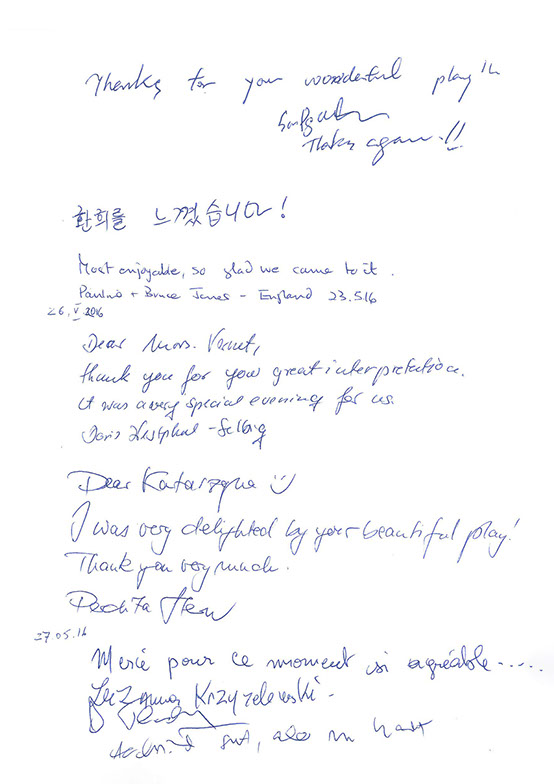 Thanks for your wonderful play!!!
Thanks again.!!
환희를 느꼈습니다!
Most enjoyable, so glad we came to it.
Bruce Jones - England 23.5.16
26.V.2016
Dear Mrs.
thank you for your great interpretation.
it was a very special evening for us
Doris
Dear Katarzyna
I was very delighted by your beautiful play!
Thank you very much.
27.05.16
Merci pour ce moment si agréable.....